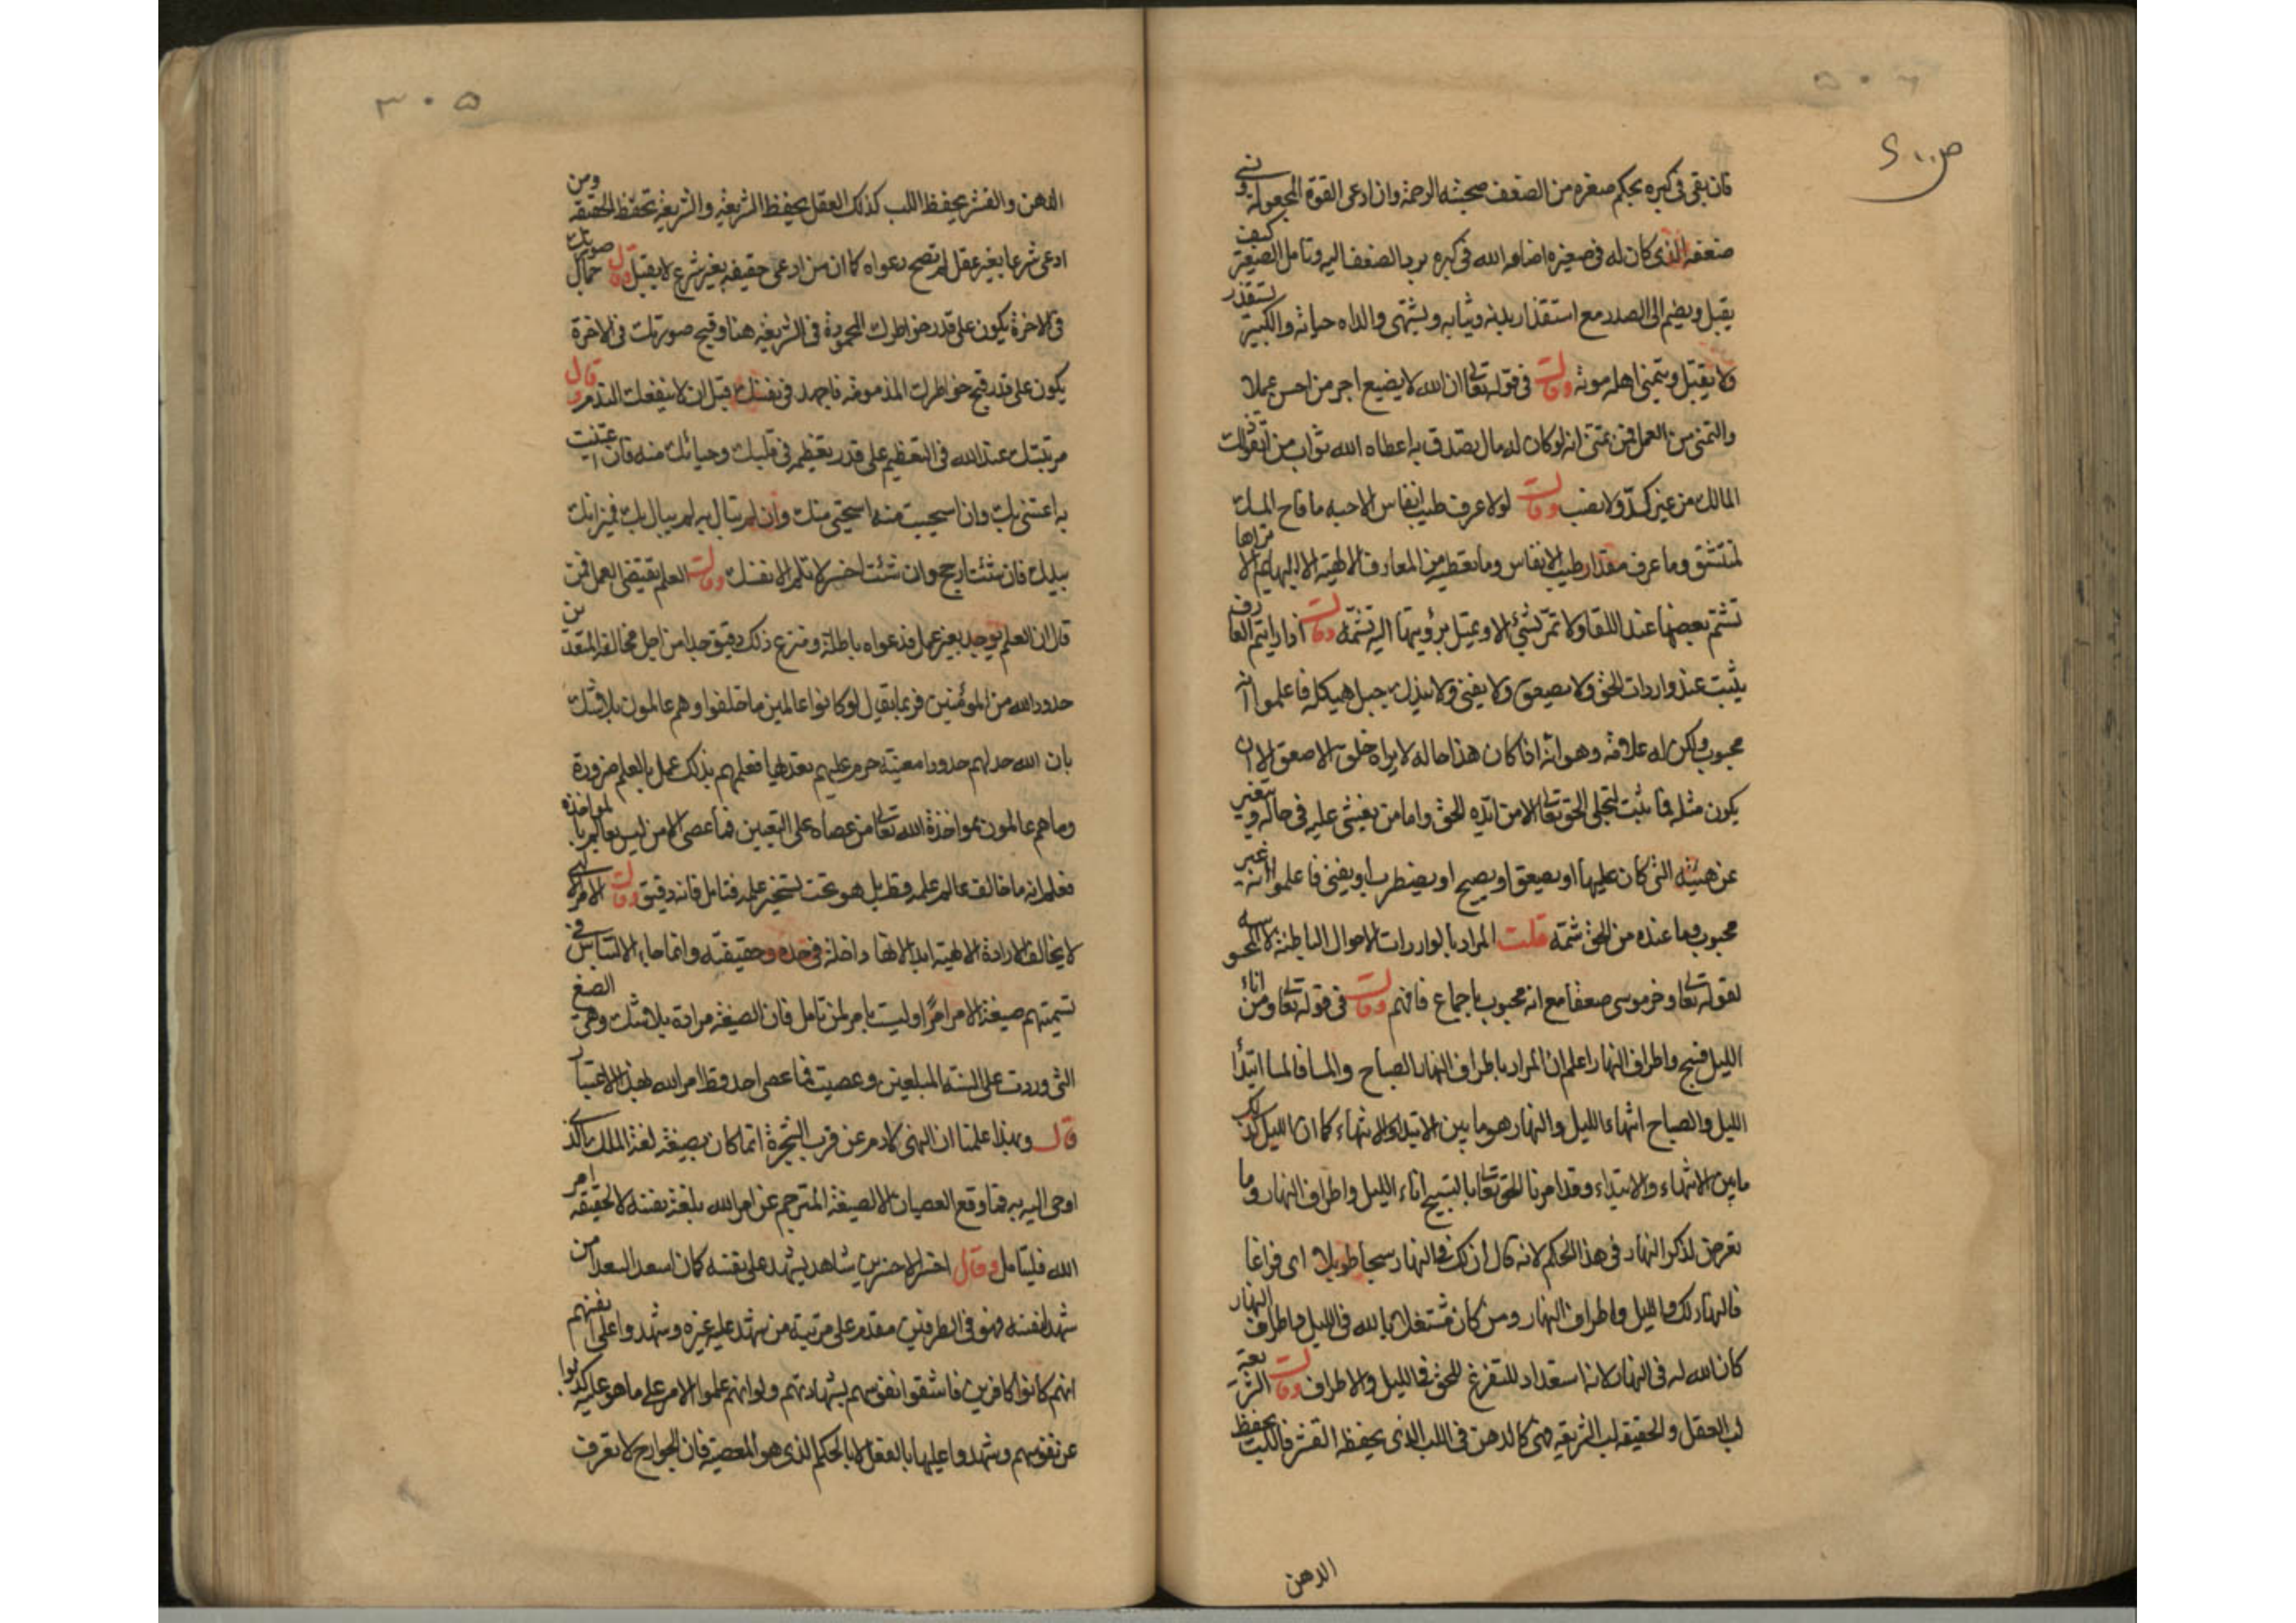 ٥٠٦
ص ١٠٠
فان بقى فى كبره بحكم صغره من الضعف صحبته الرحمة وان ادعى القوة المجعولة ونسى
ضعفه الذى كان له فى صغره اضاعه الله فى كبره برد الضعف اليه وتامل الصغير كيف
يقبل ويضم الى الصدر مع استقذار بدنه وثيابه ويشتهى والداه حياته والكبير يستقذر
ولا يقبل ويتمنى اهله موته وقال فى قوله تعالى ان الله لا يضيع اجر من احسن عملا
والتمنى من العمل فمن تمنى انه لو كان له مال يصدق به اعطاه الله ثواب من
المالك من غير كد ولا نصب وقال لولا عرف طيب انفاس الاحبه ما فاح المسك
لمنتشق وما عرف مقدار طيب الانفاس وما تعطيه من المعارف الالهية الا البهايم الا تراها
تشتم بعضها عند اللقا ولا تمر بشئ الا وتميل برؤسها اليه تشمه وقال اذا رايتم العارف
يثبت عند واردات الحق ولا يصعق ولا يفنى ولا يندك جبل هيكله فاعلموا انه
محبوب ولكن له علامة وهو انه اذا كان هذا حاله لا يراه خلق الا صعق الا ان
يكون مثله فما يثبت لتجلى الحق تعالى الا من ايده الحق واما من يغشى عليه فى حاله ويتغير
عن هيئته التى كان عليها او يصعق او يصيح او يضطرب او يفنى فاعلموا انه غير
محبوب وما عنده من الحق شمة قلت المراد بالواردات الاحوال الباطنة لا الحسيه
لقوله تعالى وخر موسى صعقا مع انه محبوب باجماع فافهم وقال فى قوله تعالى ومن اناء
الليل فسبح واطراف النهار اعلم ان المراد باطراف النهار الصباح والمسا فالمسا ابتدا
الليل والصباح انتهاء الليل والنهار هو ما بين الابتداء والانتهاء كما ان الليل كذلك
ما بين الانتهاء والابتداء وقد امرنا الحق تعالى بالتسبيح اناء الليل واطراف النهار وما
تعرض لذكر النهار فى هذا الحكم لانه قال ان لك فى النهار سبحا طويلا اى فراغا
فالنهار لك والليل واطراف النهار ومن كان مشتغلا بالله فى الليل واطراف النهار
كان الله له فى النهار لانه استعداد للتفرغ للحق فى الليل والاطراف وقال الشريعة
لب العقل والحقيقه لب الشريعه فهى كالدهن فى اللب الذى يحفظه القشر فاللب يحفظ
الدهن
٣٠٥
الدهن والقشر يحفظ اللب كذلك العقل يحفظ الشريعة والشريعة تحفظ الحقيقه ومن
ادعى شرعا بغير عقل لم تصح دعواه كما ان من ادعى حقيقه بغير شرع لا يقبل وقال جمال صورتك
فى الاخرة يكون على قدر خواطرك المحمودة فى الشريعة هنا وقبح صورتك فى الاخرة
يكون على قدر قبح خواطرك المذمومه فاجهد فى نفسك قبل ان لا ينفعك الندم وقال
مرتبتك عند الله فى التعظيم على قدر تعظيمه فى قلبك وحيائك منه فان اعتنيت
به اعتنى بك وان استحييت منه استحيى منك وان لم تبال به لم يبال بك فميزانك
بيدك فان شئت ارجح وان شئت اخسر لا تلم الا نفسك وقال العلم يقتضى العمل فمن
قال ان العلم يوجد بغير عمل فدعواه باطلة ومنزع ذلك دقيق جدا من اجل مخالفة المتعدين
حدود الله من المؤمنين فربما يقال لو كانوا عالمين ما خالفوا وهم عالمون بلا شك
بان الله حد لهم حدودا معينة حرم عليهم تعديها فعلمهم بذلك عمل بالعلم ضرورة
وما هم عالمون بمواخذة الله تعالى من عصاه على التعيين فما عصى الا من ليس بعالم بالمواخذه
فعلم انه ما خالف عالم علمه قط بل هو تحت تسخير علمه فتامل فانه دقيق وقال الامر الالهى
لا يخالف الارادة الالهية ابدا لانها داخلة فى حده وحقيقته وانما جاء الالتباس فى
تسميتهم صيغة الامر امرا وليست بامر لمن تامل فان الصيغة مرادة بلا شك وهى الصيغ
التى وردت على السنة المبلغين وعصيت فما عصى احد قط امر الله بهذا الاعتبار
قال وبهذا علمنا ان النهى لادم عن قرب الشجرة انما كان بصيغة لغة الملك الذى
اوحى اليه به فما وقع العصيان الا لصيغة المترجم عن امر الله بلغة نفسه لا لحقيقة امر
الله فليتامل وقال اخسر الاخسرين شاهد يشهد على نفسه كما ان اسعد السعدا من
شهد لنفسه فهو فى الطرفين مقدم على مرتبة من شهد عليه غيره وشهدوا على انفسهم
انهم كانوا كافرين فاشقوا نفوسهم بشهادتهم ولو انهم علموا الامر على ما هو عليه كذبوا
عن نفوسهم وشهدوا عليها بالفعل لا بالحكم الذى هو المعصية فان الجوارح لا تعرف